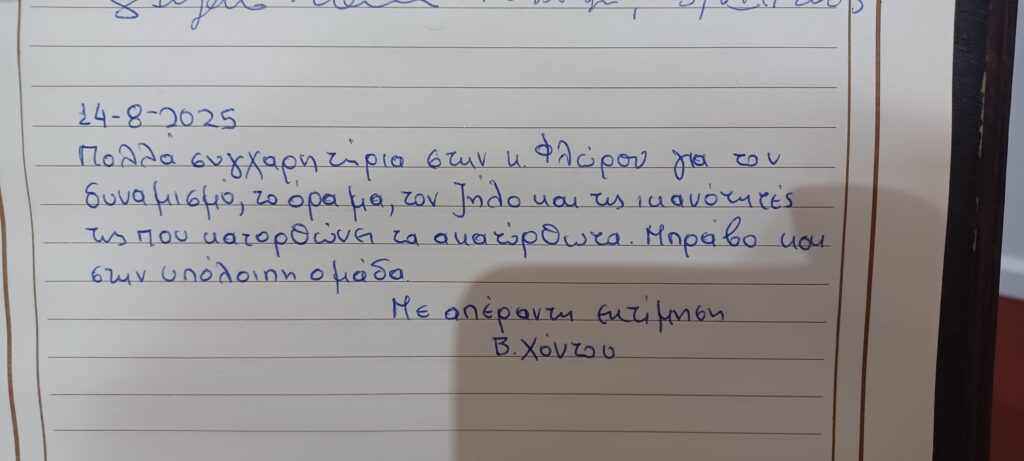 14-8-2025
Πολλά συγχαρητήρια στην κ. Φλώρου για τον
δυναμισμό, το όραμα, τον ζήλο και τις ικανότητές
της που κατορθώνει τα ακατόρθωτα. Μπράβο και
στην υπόλοιπη ομάδα.
Με απέραντη εκτίμηση
Β. Χόντου